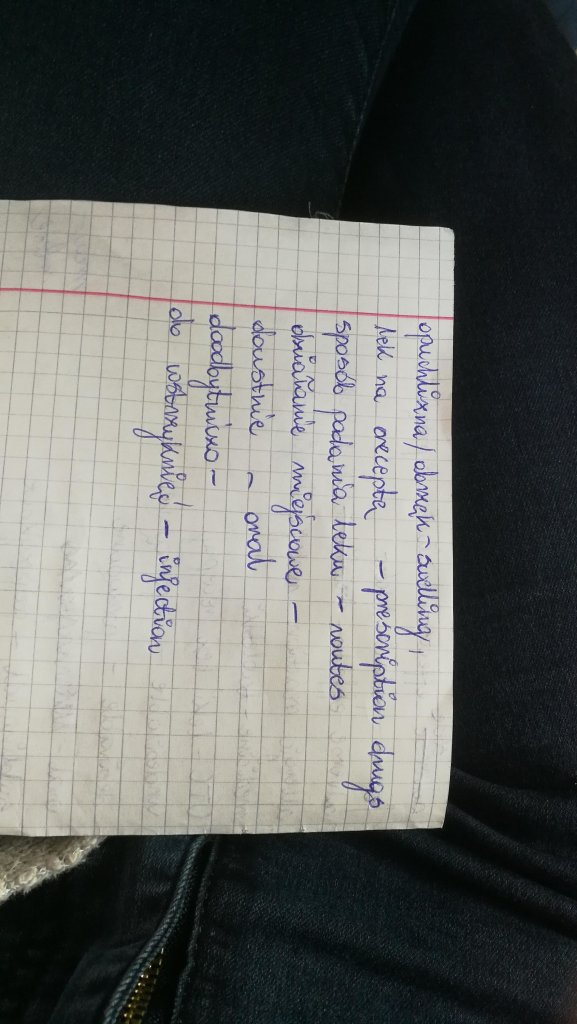 opuchlizna/obrzęk - swelling,
lek na receptę - prescription drugs
sposób podania leku - routes
działanie miejscowe -
doustnie - oral
doodbytniczo -
do wstrzyknięć - injection